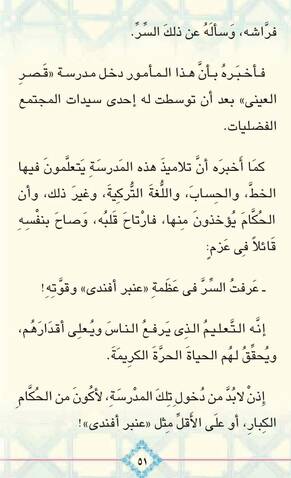 فرَّاشه، وَسألَهُ عن ذلكَ السِّرِّ.
فـأخـبـرَهُ بـأنَّ هـذا الـمـأمور دخل مدرسة «قَـصـرِ
العينى» بعد أن توسطت له إحدى سيدات المجتمع
الفضليات.
كمَا أخبره أنَّ تلاميذَ هذه المَدرسَةِ يَتعلَّمونَ فيها
الخطَّ، والحِسابَ، واللُّغةَ التُّركيةَ، وغيرَ ذلك، وأن
الحُكَّامَ يُؤخذونَ منها، فارْتاحَ قلبُه، وَصاحَ بنفْسِهِ
قَائلاً فى عَزمٍ:
ـ عَرفتُ السِّرَّ فى عَظَمةِ «عنبر أفندى» وقوَّتِهِ!
إنَّه التَّعليمُ الذى يَرفـعُ الناسَ ويُعلِى أقدَارَهُم،
ويُحقِّقُ لهُم الحياةَ الحرَّةَ الكريمَةَ.
إذنْ لابُدَّ من دُخولِ تِلكَ المدْرسَةِ، لأكُونَ من الحُكَّامِ
الكِبارِ، أو علَى الأقلِّ مِثل «عنبر أفندى»!
٥١